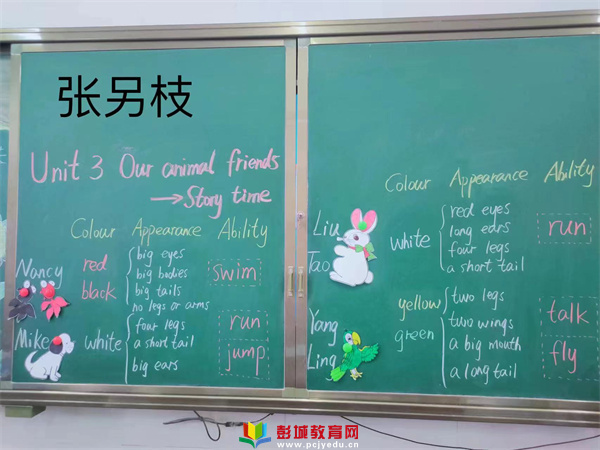 张另枝
Unit 3 Our animal friends
→Story time
Colour Appearance Ability
Nancy
red
black
big eyes
big bodies
big tails
no legs or arms
swim
Mike
white
four legs
a short tail
big ears
run
jump
Colour Appearance Ability
Liu
Tao
white
red eyes
long ears
four legs
a short tail
run
Yang
Ling
yellow
green
two legs
two wings
a big mouth
a long tail
talk
fly
彭城教育网
www.pcjyedu.cn